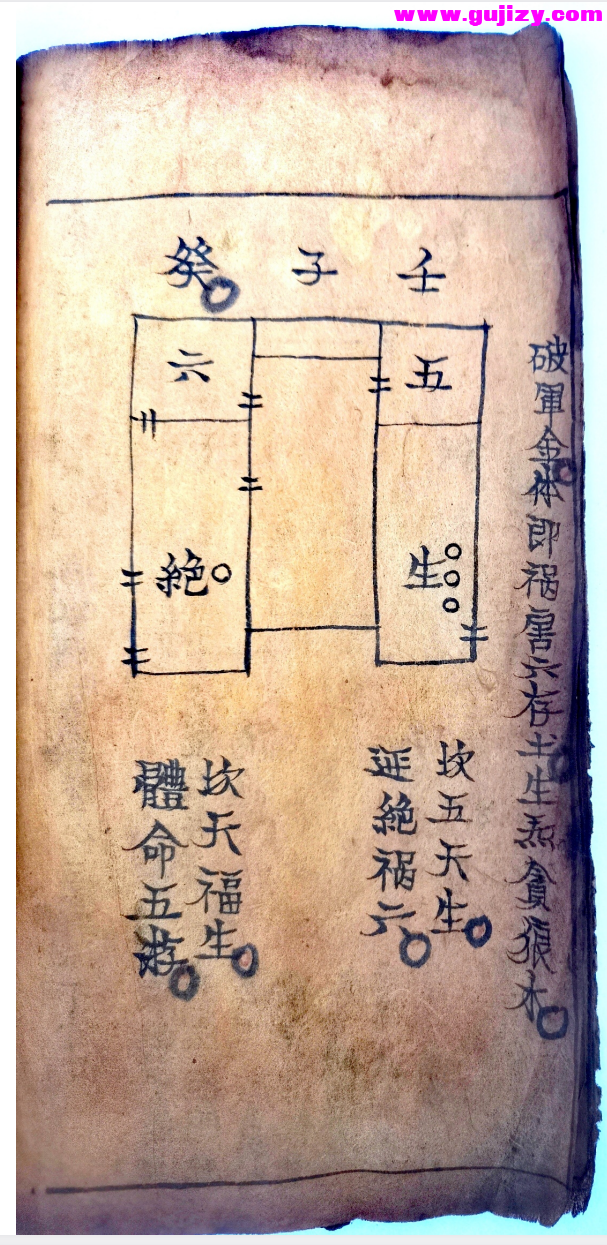 www.gujizy.com
破軍金体即祸害六存土生炁貪狼木
壬
子
癸
五
生
六
絶
坎五天生
延絶祸六
坎天福生
體命五遊